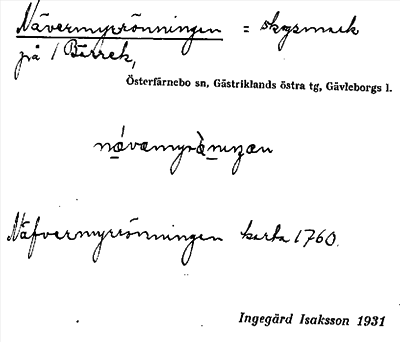 Nävermyrrönningen = skogsmark
på 1 Bärrek,
Österfärnebo sn, Gästriklands östra tg, Gävleborgs l.
Näfvermyrrönningen karta 1760.
Ingegärd Isaksson 1931